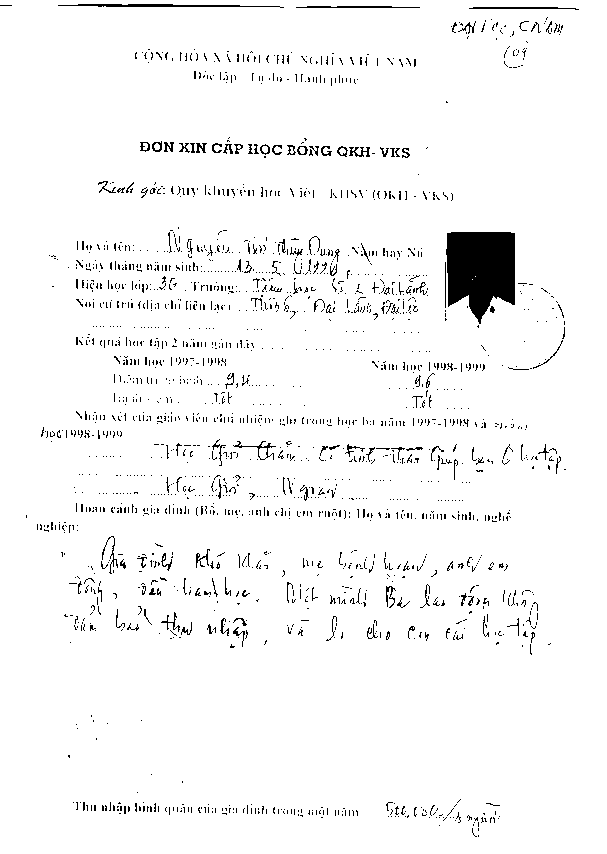 ĐẠI LỘC, QNAM
(09)
CỘNG HÒA XÃ HỘI CHỦ NGHĨA VIỆT NAM
Độc lập - Tự do - Hạnh phúc
ĐƠN XIN CẤP HỌC BỔNG QKH- VKS
Kính gởi: Quỹ khuyến học Việt - KHSV (QKH - VKS)
Họ và tên: Nguyễn Thị Thùy Dung Nam hay Nữ
Ngày tháng năm sinh: 13 5
Hiện học lớp: 3G Trường: Tiểu học số 2 Đại Lãnh
Nơi cư trú (địa chỉ liên lạc) Đại Lãnh, Đại Lộc
Kết quả học tập 2 năm gần đây
Năm học 1997-1998 Năm học 1998-1999
Điểm trung bình 9,6
Tốt Tốt
Nhận xét của giáo viên chủ nhiệm ghi trong học bạ năm 1997-1998 và
học 1998-1999
Học giỏi Có tinh thần giúp bạn học tập
Học Giỏi, Ngoan
Hoàn cảnh gia đình (Bố, mẹ, anh chị em ruột): Họ và tên, năm sinh, nghề
nghiệp:
Gia đình khó khăn, mẹ bệnh hoạn, anh em
đông, đều ham học. Một mình Ba lao động không
đảm bảo thu nhập, và lo cho con cái học tập.
Thu nhập bình quân của gia đình trong một năm